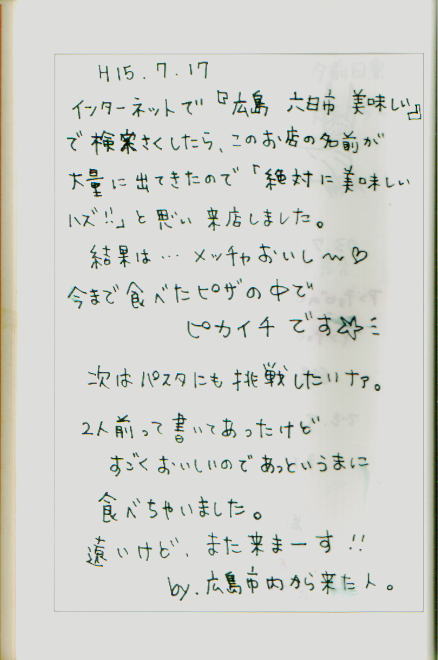 H15.7.17
インターネットで『広島 六日市 美味しい』
で検案さくしたら、このお店の名前が
大量に出てきたので「絶対に美味しい
ハズ!!」と思い来店しました。
結果は… メッチャおいし〜♡
今まで食べたピザの中で
ピカイチです☆ミ
次はパスタにも挑戦したいナァ。
2人前って書いてあったけど
すごくおいしいのであっというまに
食べちゃいました。
遠いけど、また来まーす!!
by.広島市内から来た人。